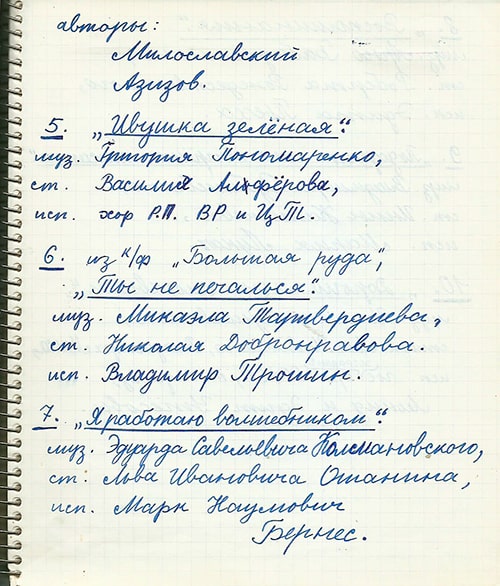 авторы:
Милославский
Азизов.
5. „Ивушка зелёная".
муз. Григория Пономаренко,
ст. Василия Алфёрова,
исп. хор Р.П. ВР и ЦТ.
6. из к/ф „Большая руда",
„Ты не печалься".
муз. Микаэла Таривердиева,
ст. Николая Добронравова.
исп. Владимир Трошин.
7. „Я работаю волшебником".
муз. Эдуарда Савельевича Колмановского,
ст. Льва Ивановича Ошанина,
исп. Марк Наумович
Бернес.